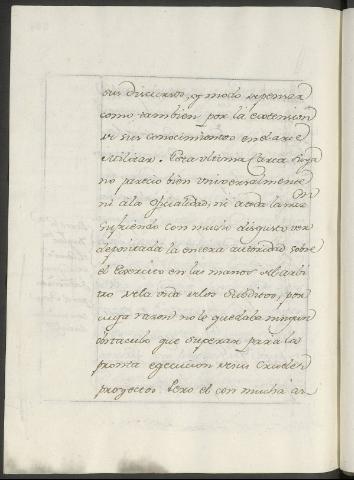 sus discursos, y modo de pensar
como tambien por la extension
de sus conocimientos en el arte
militar. Esta ultima Carta Suya
no parecio bien universalmente
ni á la oficialidad, ni a toda la nacion
sufriendo con mucho disgusto ver
depositada la entera autoridad sobre
el Exercito en las manos del Arbi
tro de la vida de los Subditos, por
cuya razon no le quedaba ningun
obstaculo que superar para la
pronta egecucion de sus Crueles
proyectos. Pero el con mucha ar